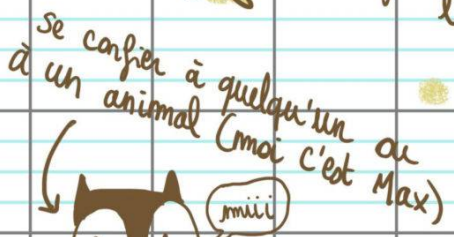 se confier à quelqu'un ou
à un animal (moi c'est Max)
miii